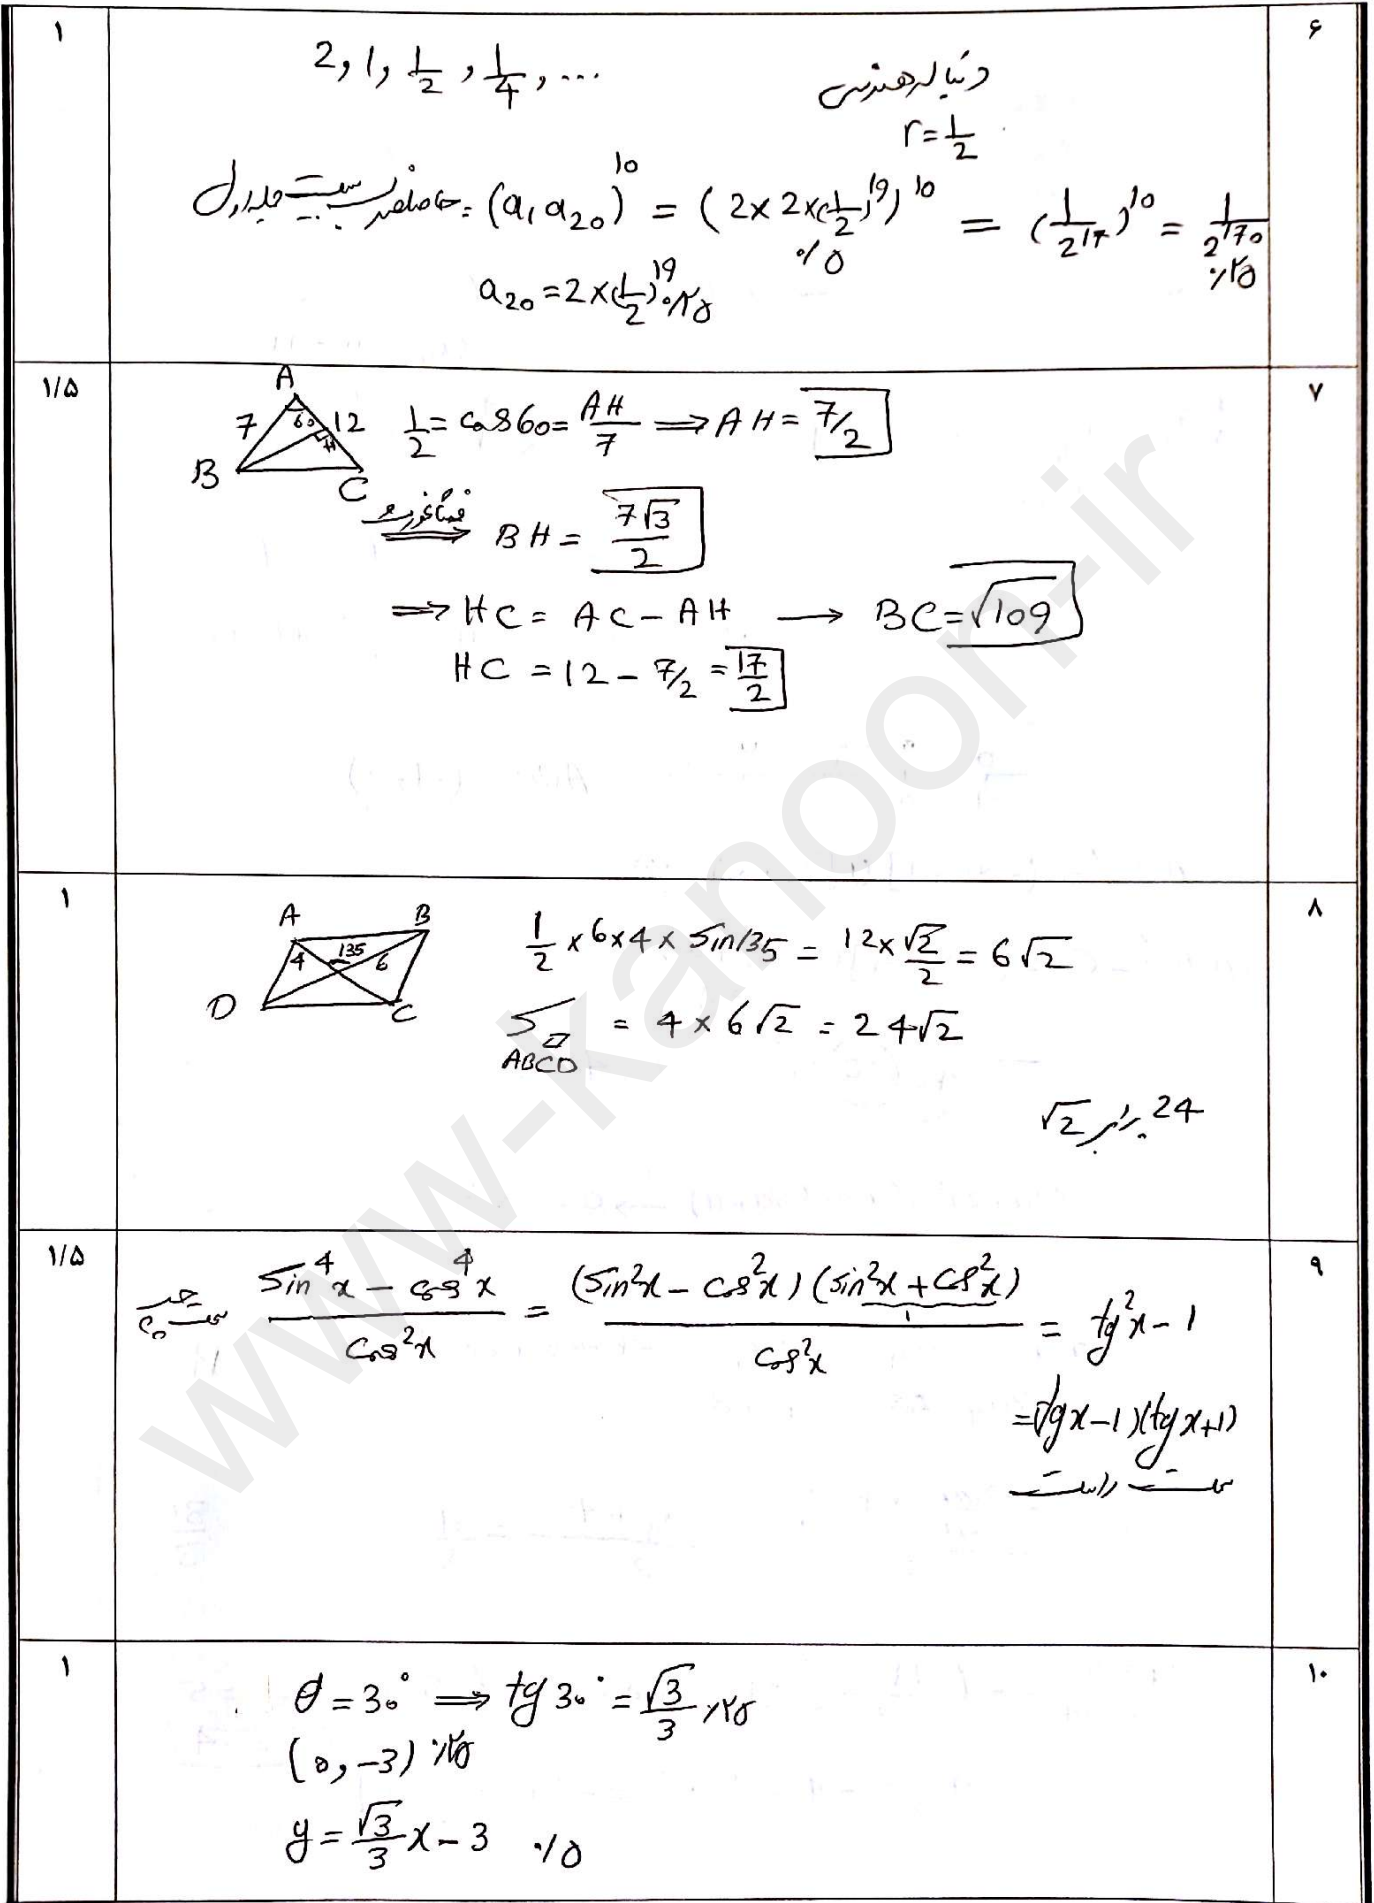 ۶
۱
2, 1, 1/2, 1/4, ...
دنباله هندسی
r = 1/2
حاصلضرب بیست جمله اول = (a₁ a₂₀)^10 = (2×2×(1/2)^19)^10 = (1/2^17)^10 = 1/2^170
۰/۵
۰/۲۵
a₂₀ = 2×(1/2)^19 ۰/۲۵
۷
۱/۵
A
B
C
H
7
60
12
1/2 = cos60 = AH/7 ⟹ AH = 7/2
فیثاغورس ⟹ BH = 7√3/2
⟹ HC = AC − AH ⟶ BC = √109
HC = 12 − 7/2 = 17/2
۸
۱
A
B
C
D
4
135
6
1/2 × 6 × 4 × sin135 = 12 × √2/2 = 6√2
S ▱ ABCD = 4 × 6√2 = 24√2
24 برابر √2
۹
۱/۵
سمت چپ
(sin⁴x − cos⁴x)/cos²x = (sin²x − cos²x)(sin²x + cos²x)/cos²x = tg²x − 1
1
= (tgx − 1)(tgx + 1)
سمت راست
۱۰
۱
θ = 30° ⟹ tg30° = √3/3 ۰/۲۵
(0, −3) ۰/۲۵
y = √3/3 x − 3 ۰/۵
www-kanoon-ir